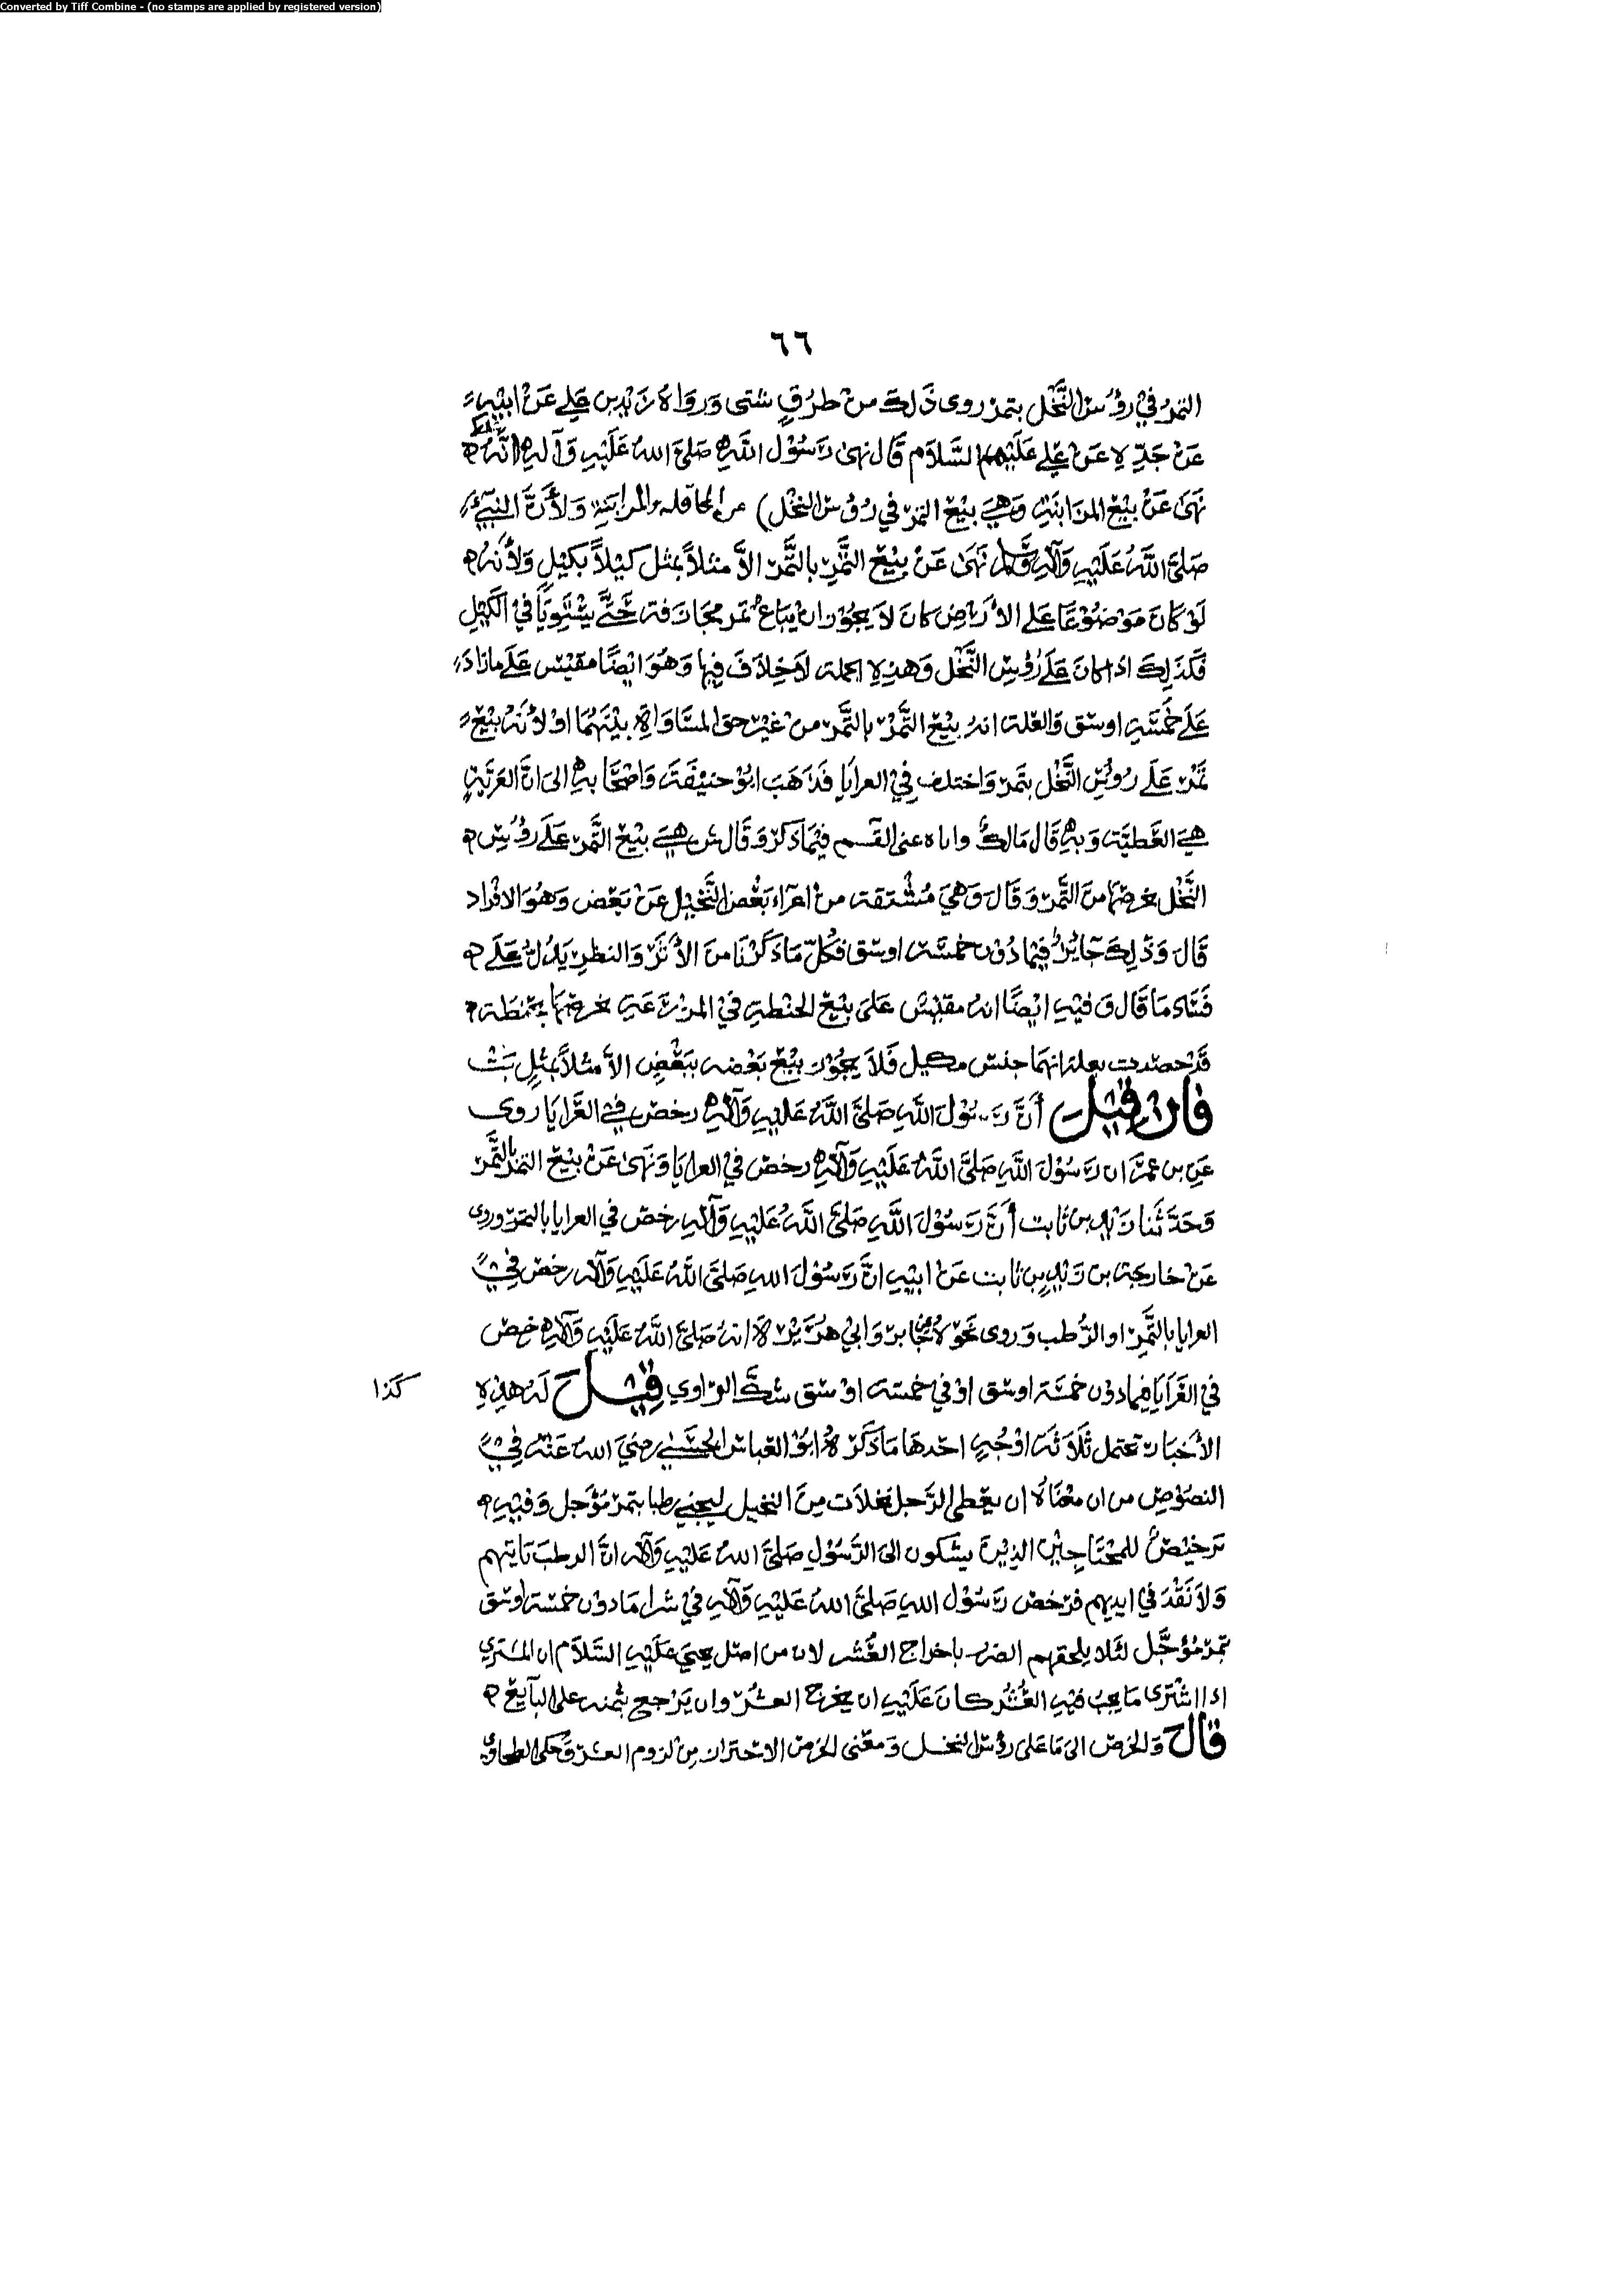 Converted by Tiff Combine - (no stamps are applied by registered version)
٦٦
التمر في رؤس النخل بتمر روى ذلك من طرق شتى ورواه زيد بن علي عن ابيه
عن جده عن علي عليهم السلام قال نهى رسول الله صلى الله عليه وآله انه
نهى عن بيع المزابنة وهي بيع التمر في رؤس النخل) عن المحاقله والمزابنة ولأن النبي
صلى الله عليه وآله وسلم نهى عن بيع التمر بالتمر الا مثلاً بمثل كيلاً بكيل ولأنه
لو كان موضوعا على الأرض كان لا يجوز ان يباع بتمر مجازفة حتى يستويا في الكيل
فكذلك اذا كان على رؤس النخل وهذه الجملة لا خلاف فيها وهو ايضًا مقيس على ما زاد
على خمسة اوسق والعلة انه بيع التمر بالتمر من غير المساواة بينهما او لأنه بيع
تمر على رؤس النخل بتمر واختلف في العرايا فذهب ابو حنيفة واصحابه الى ان العرية
هي العطية وبه قال مالك واياه عنى القسم فيما ذكر وقال ش هي بيع التمر على رؤس
النخل بخرصها من التمر وقال وهي مشتقة من اعراء بعض النخيل عن بعض وهو الافراد
قال وذلك جائز فيما دون خمسة اوسق فكل ما ذكرنا من الأثر والنظر يدل على
فساد ما قال وفيه ايضًا انه مقيس على بيع الحنطة في المزرعة بخرصها بحنطة
قد حصدت بعلة انهما جنس مكيل فلا يجوز بيع بعضه ببعض الا مثلاً بمثل
فان قيل أن رسول الله صلى الله عليه وآله رخص في العرايا روى
عن بن عمر ان رسول الله صلى الله عليه وآله رخص في العرايا ونهى عن بيع التمر بالتمر
وحدثنا زيد بن ثابت أن رسول الله صلى الله عليه وآله رخص في العرايا بالتمر وروى
عن خارجة بن زيد بن ثابت عن ابيه ان رسول الله صلى الله عليه وآله رخص في
العرايا بالتمر او الرطب وروى نحوه جابر وابي هريرة انه صلى الله عليه وآله رخص
في العرايا فيما دون خمسة اوسق او في خمسة اوسق شك الراوي قيل له هذه
كذا
الأخبار تحتمل ثلاثة اوجه احدها ما ذكره ابو العباس الحسني رضي الله عنه في
النصوص من ان معناه ان يعطي الرجل نخلات من النخيل ليجني رطبا بتمر مؤجل وفيه
ترخيص للمحتاجين الذين يشكون الى الرسول صلى الله عليه وآله ان الرطب ياتيهم
ولا نقد في ايديهم فرخص رسول الله صلى الله عليه وآله في شرا ما دون خمسة اوسق
بتمر مؤجل لئلا يلحقهم الضرر باخراج العشر لان من اصل يحيى عليه السلام ان المشتري
اذا اشترى ما يجب فيه العشر كان عليه ان يخرج العشر وان يرجع بثمنه على البائع
قال والخرص الى ما على رؤس النخل ومعنى الخرص الاحتراز من لزوم العشر وحكى الطحاوي